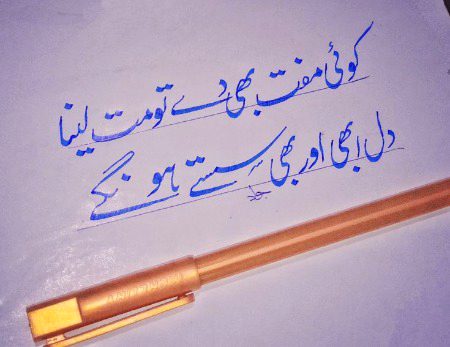 کوئی مفت بھی دے تو مت لینا
دل ابھی اور بھی سستے ہونگے